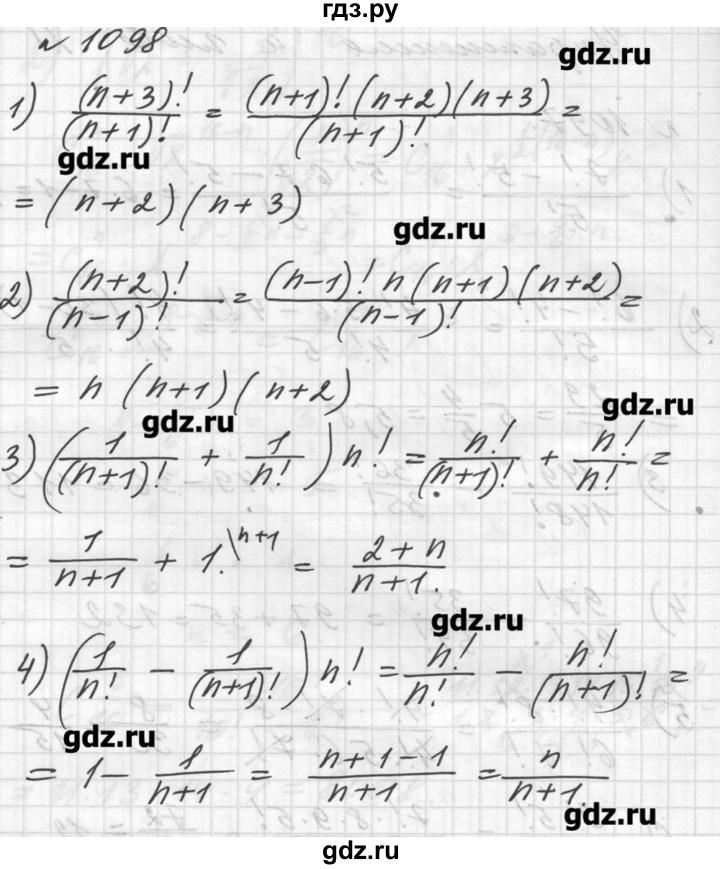 гдз.ру
№ 1098
gdz.ru
1) (n+3)!/(n+1)! = (n+1)!(n+2)(n+3)/(n+1)! =
gdz.ru
= (n+2)(n+3)
gdz.ru
2) (n+2)!/(n-1)! = (n-1)! n(n+1)(n+2)/(n-1)! =
= n(n+1)(n+2)
gdz.ru
gdz.ru
3) (1/(n+1)! + 1/n!) n! = n!/(n+1)! + n!/n! =
= 1/(n+1) + 1.\n+1 = (2+n)/(n+1).
gdz.ru
4) (1/n! - 1/(n+1)!) n! = n!/n! - n!/(n+1)! =
gdz.ru
= 1 - 1/(n+1) = (n+1-1)/(n+1) = n/(n+1).
gdz.ru
gdz.ru